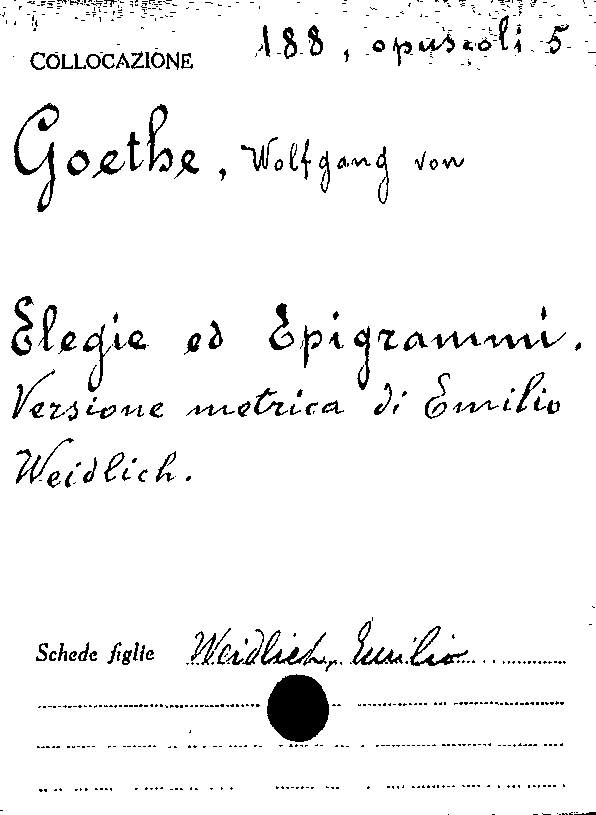 COLLOCAZIONE 188, opuscoli 5
Goethe, Wolfgang von
Elegie ed Epigrammi.
Versione metrica di Emilio
Weidlich.
Schede figlie Weidlich, Emilio